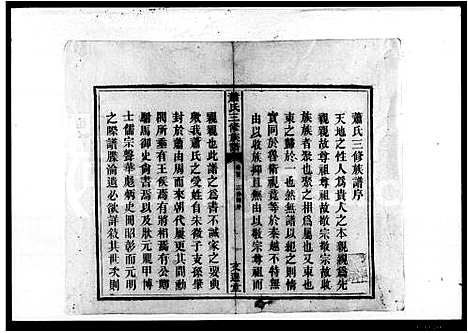 蕭氏三修族譜序
天地之性人爲貴人之本親親爲先
親親故尊祖尊祖故敬宗敬宗故收
族族者聚也聚之相爲屬也又束也
束之歸於一也然無譜以紀之則情
實同於魯衛視竟等於秦越不特無
由以收族抑且無由以敬宗尊祖而
蕭氏三修族譜
親親也此譜之爲書不誠家之要典
歟我蕭氏之受姓自宋微子支孫肇
封於蕭由周而來朝代屢更其間勳
閥所垂有王侯焉有將相焉有公卿
駙馬御史尚書焉以及狀元鼎甲博
士儒宗聲華彪炳史冊昭彰而元明
之際譜牒淪遺必欲詳敘其世次則
文進堂